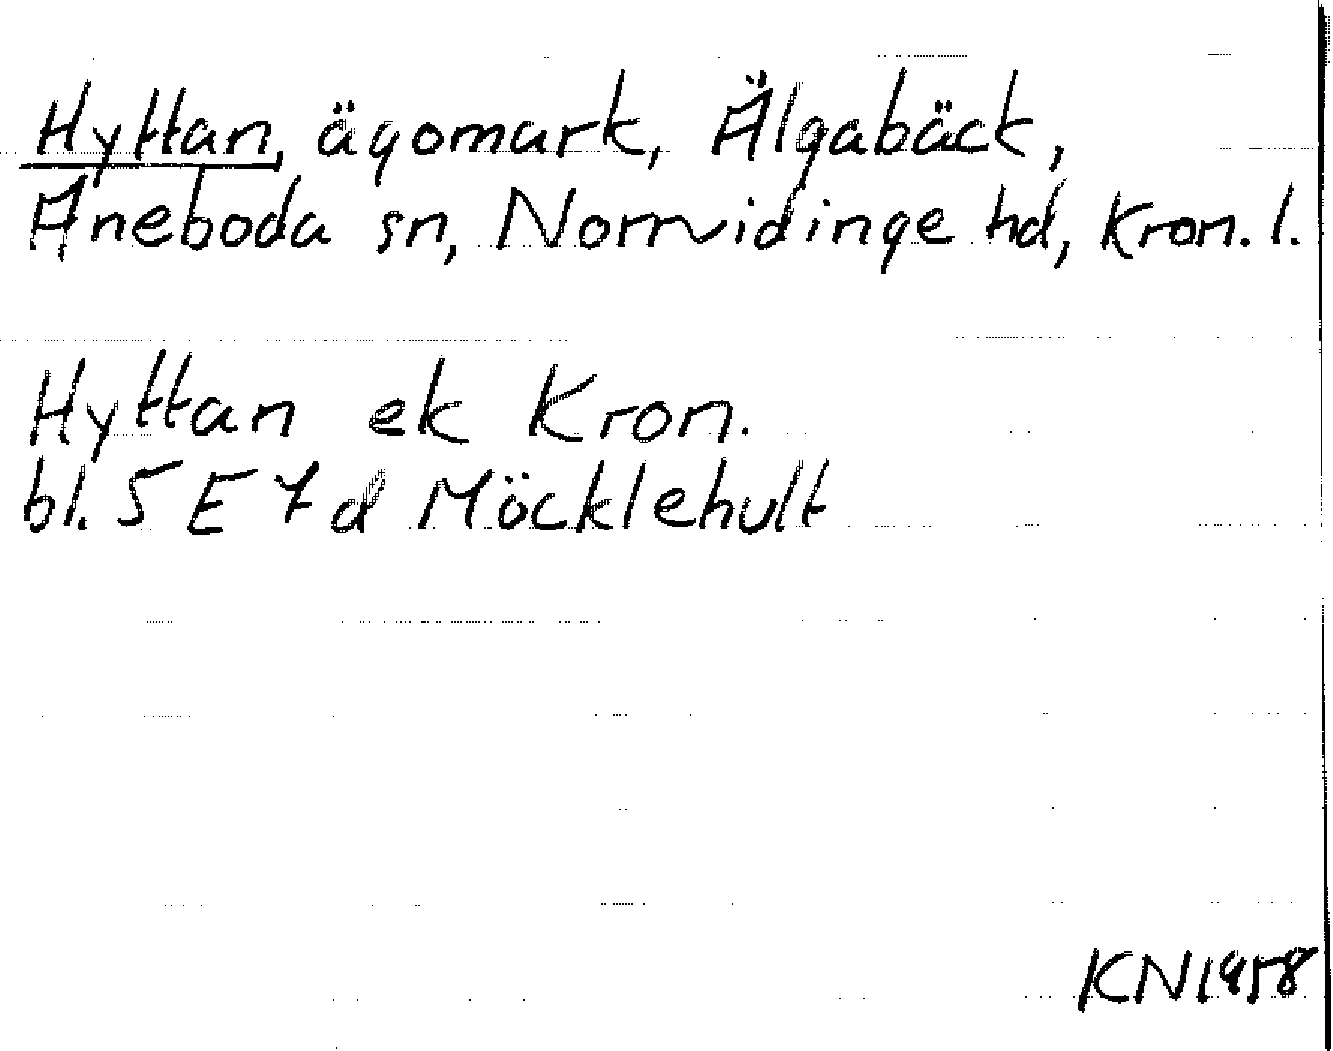 Hyttan, ägomark, Älgabäck,
Aneboda sn, Norrvidinge hd, Kron. l.
Hyttan ek Kron.
bl. 5 E 7 d Möcklehult
KN 1958